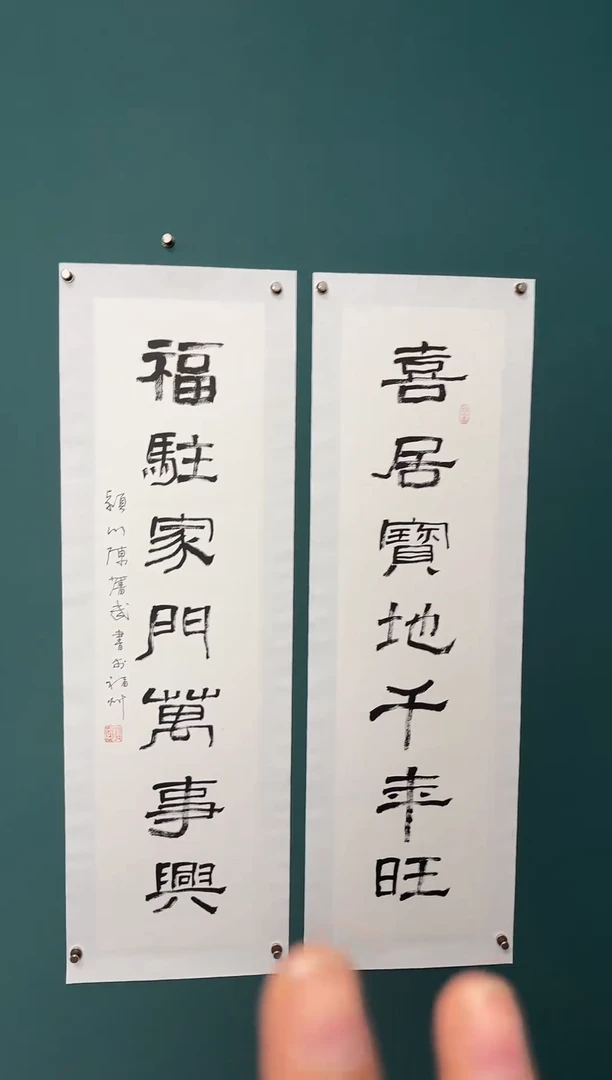 喜居寶地千年旺
福駐家門萬事興
潁川陳蕃武書於福州